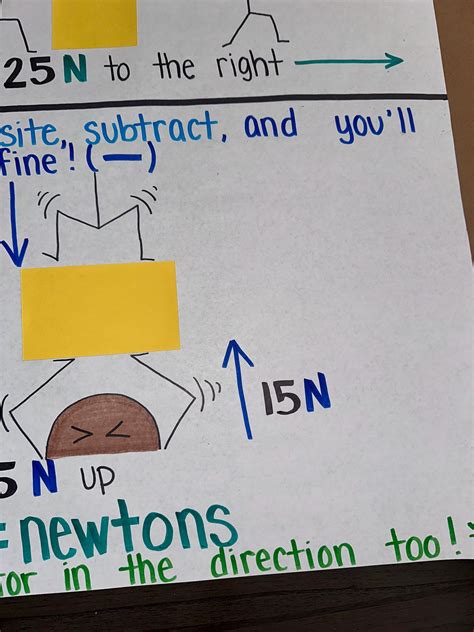 25N to the right
site, subtract, and you'll
fine! (—)
15N
5 N UP
= newtons
or in the direction too!